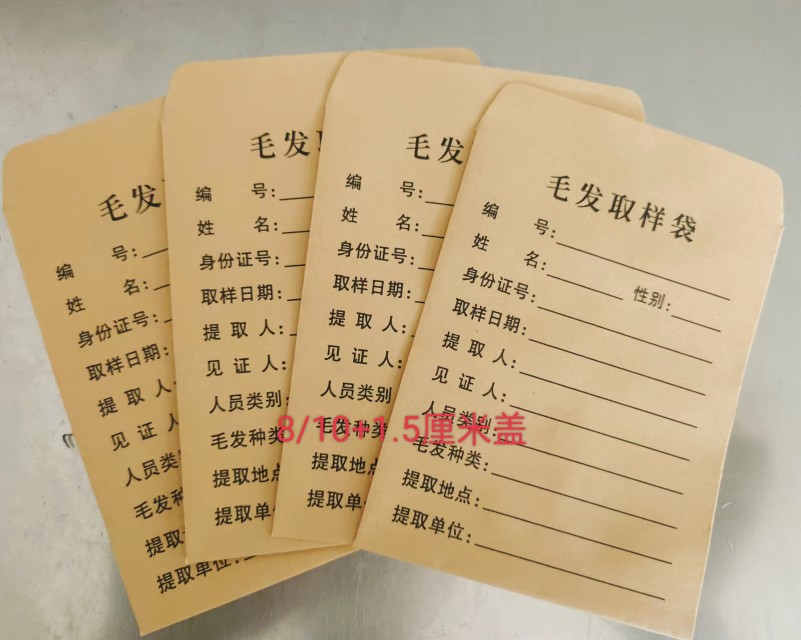 毛发
编 号:
姓 名:
身份证号:
取样日期:
提 取 人:
见 证 人
人员类
毛发种
提取
提取单位:
毛发
编 号:
姓 名:
身份证号:
取样日期:
提 取 人:
见 证 人:
人员类别:
毛发种类
提取地点
提取单
毛发
编 号:
姓 名:
身份证号:
取样日期:
提 取 人:
见 证 人:
人员类别
毛发种类
提取地点:
提取单位:
毛发取样袋
编 号:
姓 名: 性别:
身份证号:
取样日期:
提 取 人:
见 证 人:
人员类别:
毛发种类:
提取地点:
提取单位:
8/10+1.5厘米盖